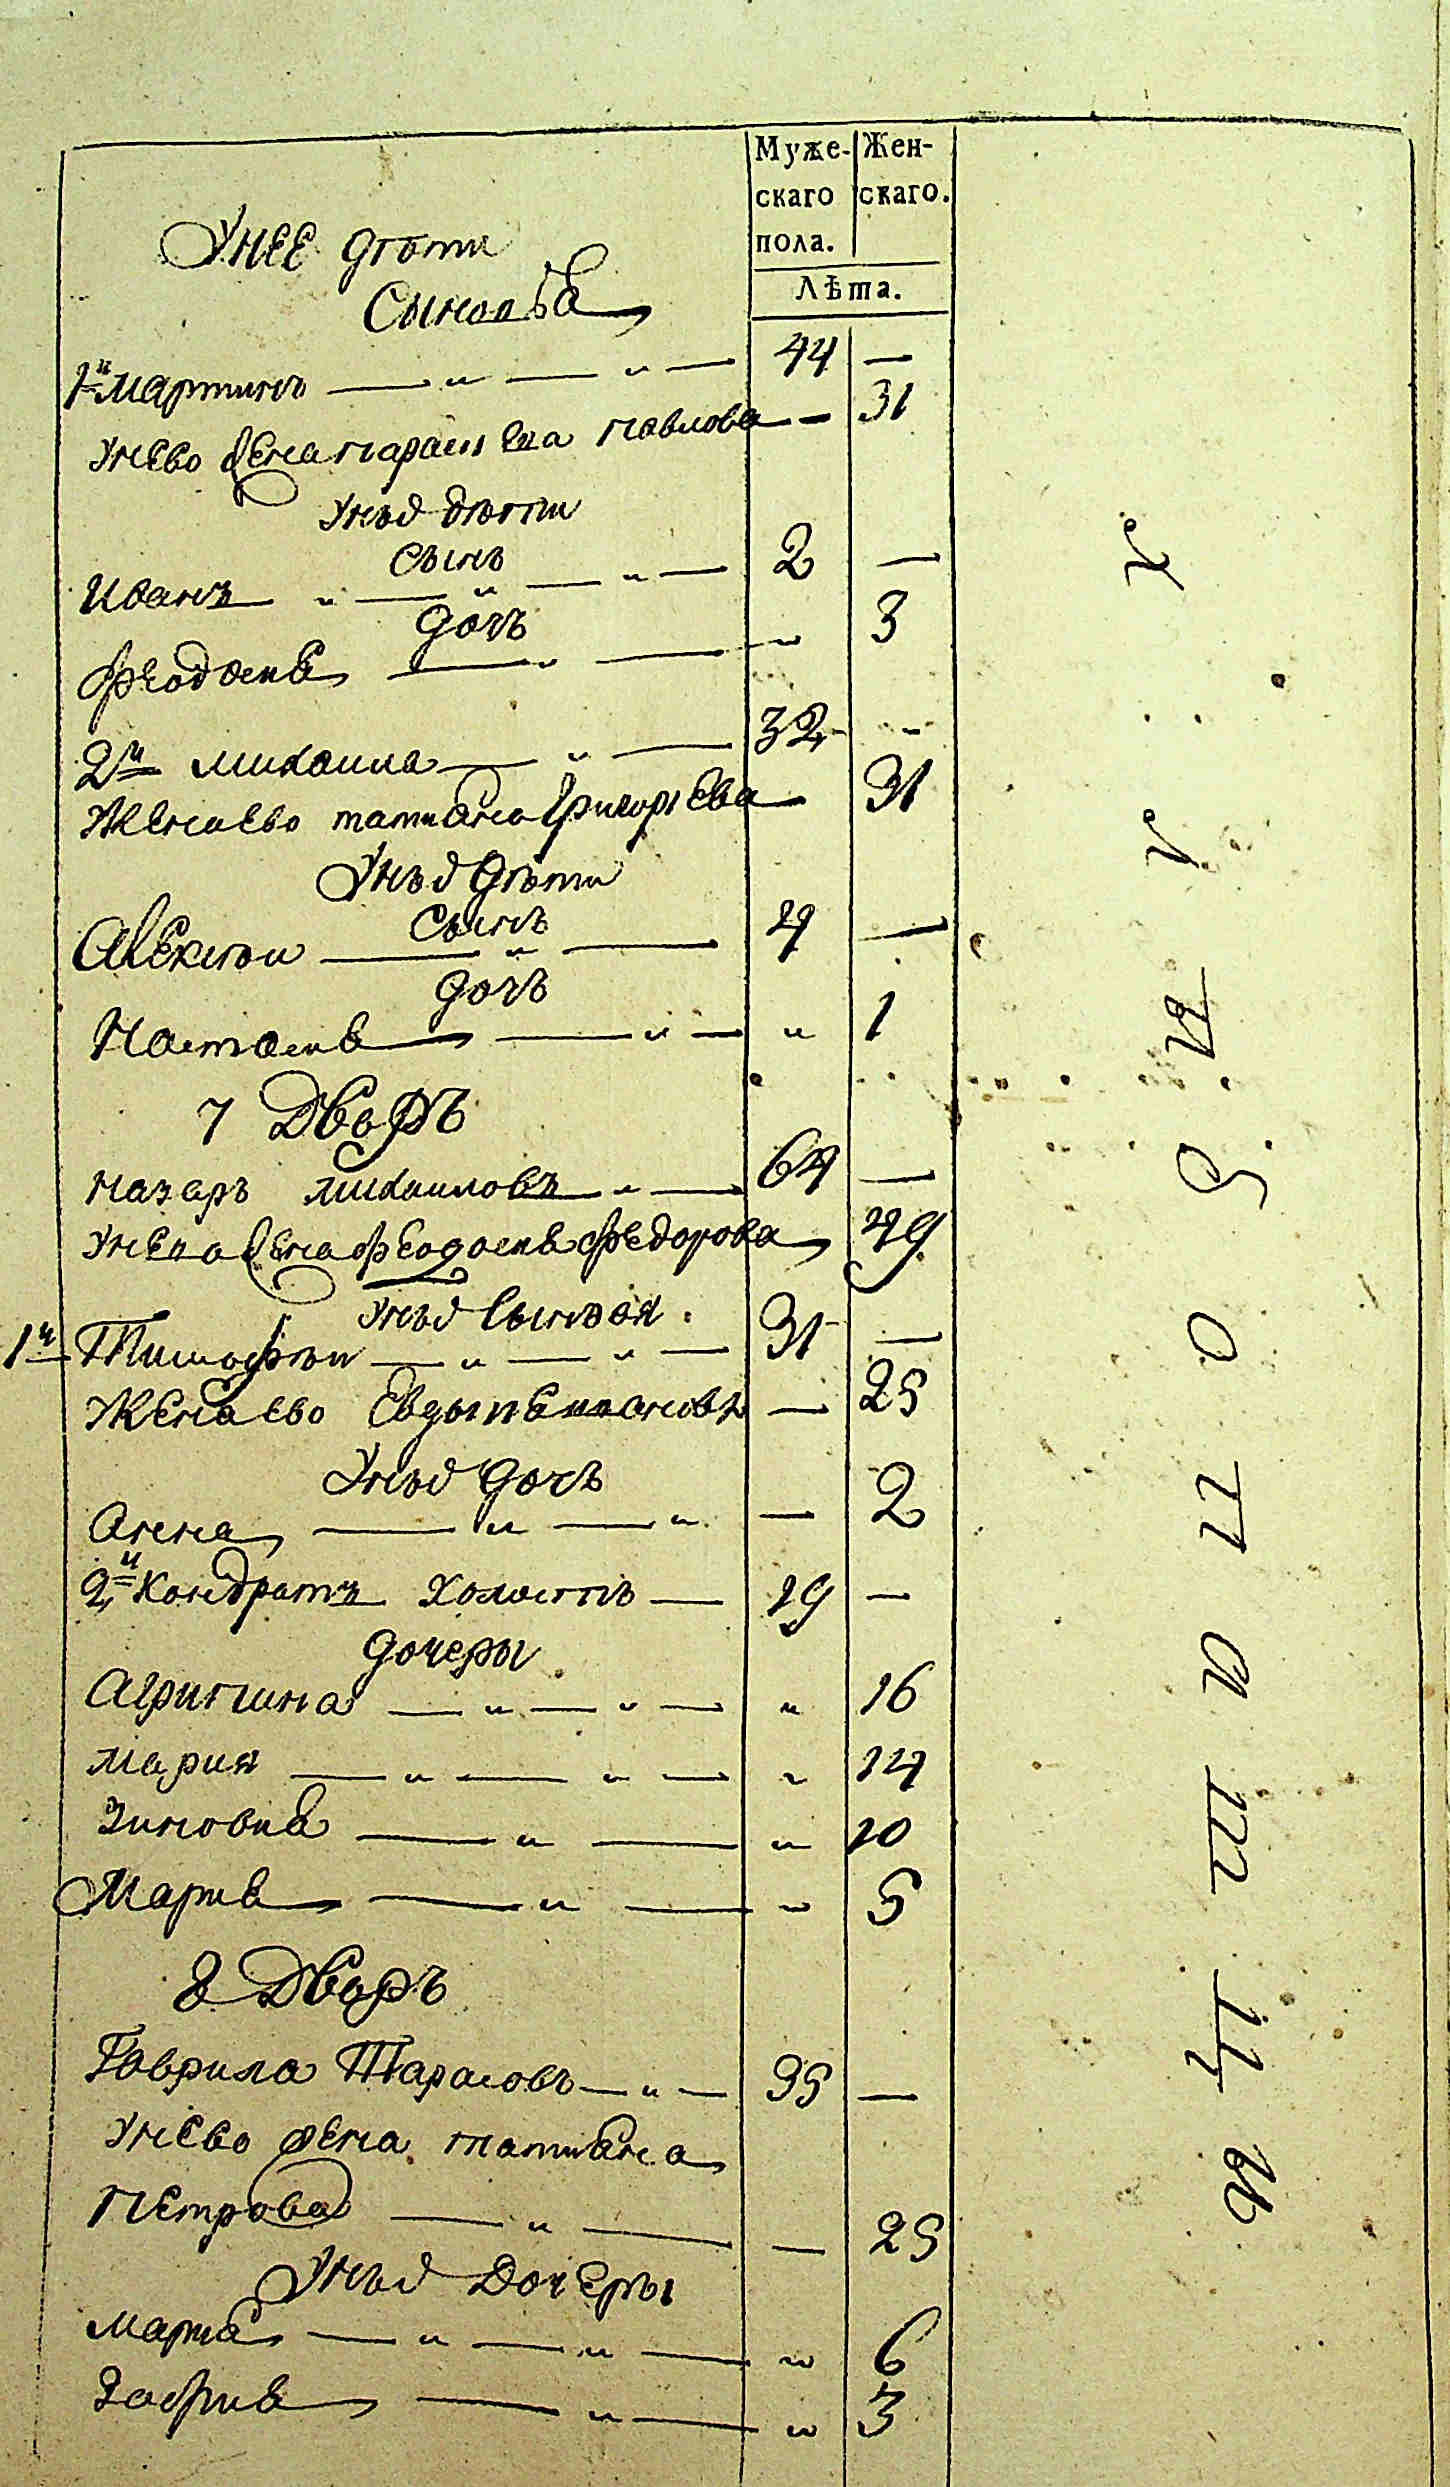 Муже- Жен-
скаго скаго.
пола.
Лѣта.
Унее дѣти
Сыновья
1й Мартинъ — 44 —
Унево жена параскева павлова — 31
Унъхъ дѣти
сынъ
Иванъ — 2 —
дочъ
феодосия — 3
2й михаила — 32 —
Жена ево татияна Григорьева — 31
Унъхъ дѣти
сынъ
Алексѣи — 4 —
дочъ
Настасия — 1
7 Дворъ
назаръ михаиловъ — 64 —
Унево жена феодосия федорова 49
Унъхъ сыновья
1й Тимофѣи — 31 —
Жена ево Евдыкия — 25
Унъхъ дочъ
Анна — 2
2й кондратъ холостъ — 29 —
дочеры
Агрипина — 16
мария — 14
Зиновия — 10
Мария — 5
8 Дворъ
Гаврила Тарасовъ — 35 —
Унево жена татияна
Петрова — 25
Унъхъ Дочеры
мария — 6
Зофия — 3